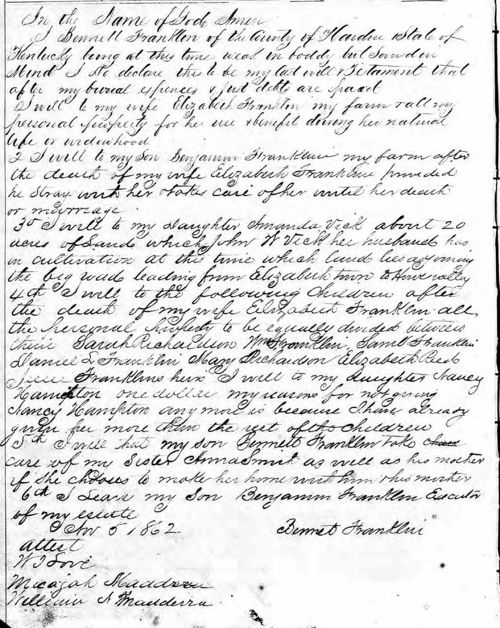 In the Name of God Amen
I Bennett Franklin of the County of Hardin & State of
Kentucky being at this time weak in boddy but Sound in
Mind I do declare this to be my last will & Testament that
after my burial expences & just debts are paid
I will to my wife Elizabeth Franklin my farm & all my
personal property for her use & benefit during her natural
life or widowhood
2 I will to my Son Benjamin Franklin my farm after
the death of my wife Elizabeth Franklin provided
he Stays with her & takes care of her until her death
or marriage
3d I will to my daughter Amanda Vick about 20
acres of Land which John W Vick her husband has
in cultivation at this time which land lies
the big road leading from Elizabeth town to
4th I will to the following Children after
the death of my wife Elizabeth Franklin all
the personal property to be equally divided between
Sarah Richardson Wm Franklin, Saml Franklin
Daniel S. Franklin Mary Richardson Elizabeth
Franklins heirs I will to my daughter Nancy
Hampton one dollar my reasons for not giving
Nancy Hampton any more is because I have already
given her more than the rest of the children
5th I will that my son Bennett Franklin take
care of my Sister Anna Smith as well as his mother
if She chooses to make her home with him & his mother
6th I leave my Son Benjamin Franklin Executor
of my estate
Nov 5 1862 Bennet Franklin
attest
W J Love
Micajah
William A